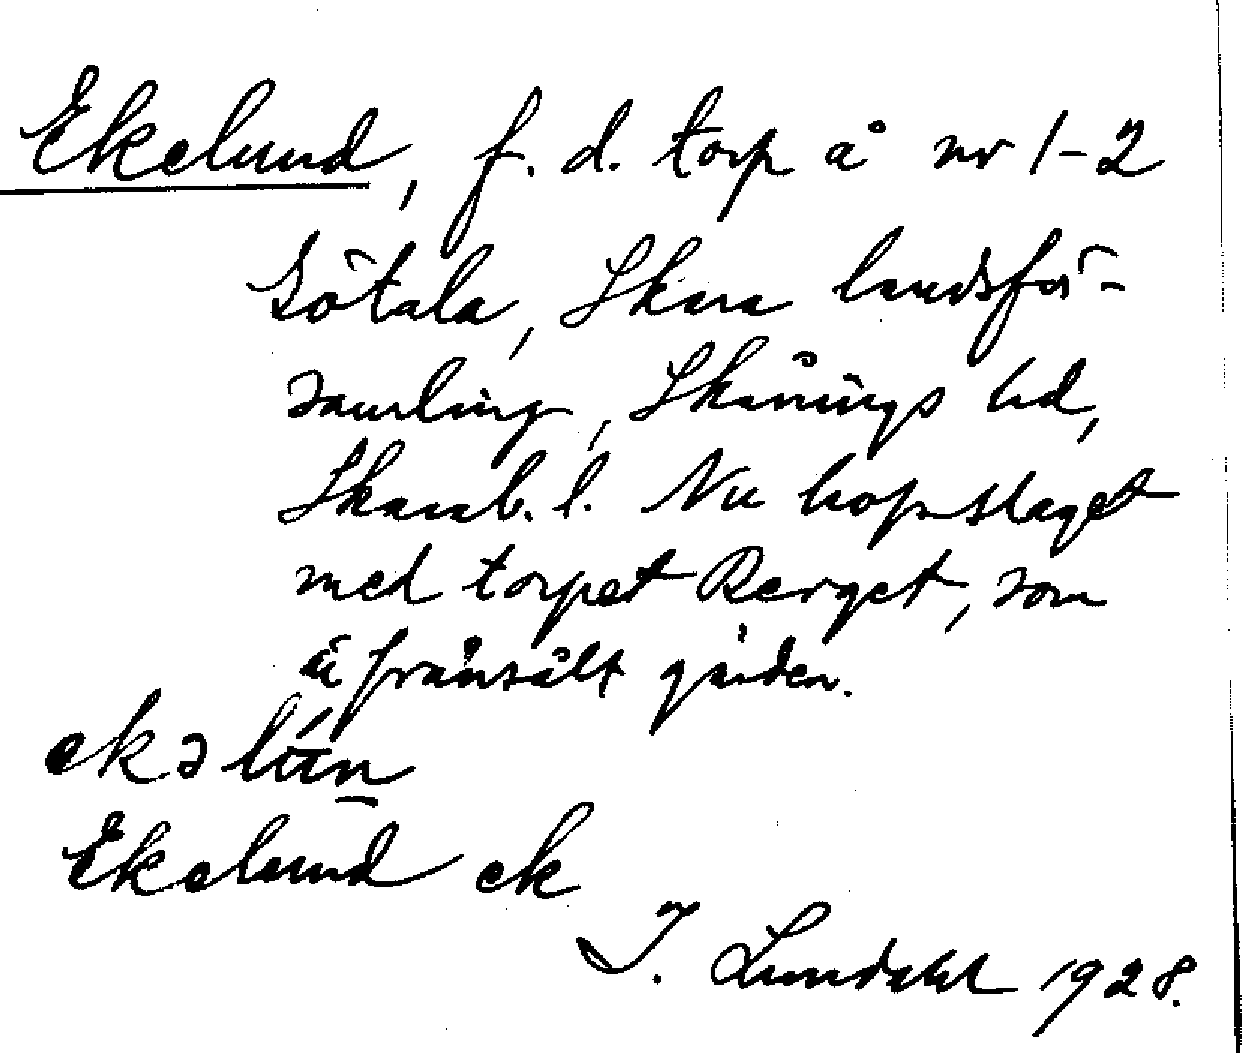 Ekelund, f. d. torp å nr 1-2
Götala, Skara landsför-
samling, Skånings hd,
Skarab. l. Nu hopslaget
med torpet Berget, som
ä frånsålt gården.
ekəlun
Ekelund ek
I. Lundahl 1928.